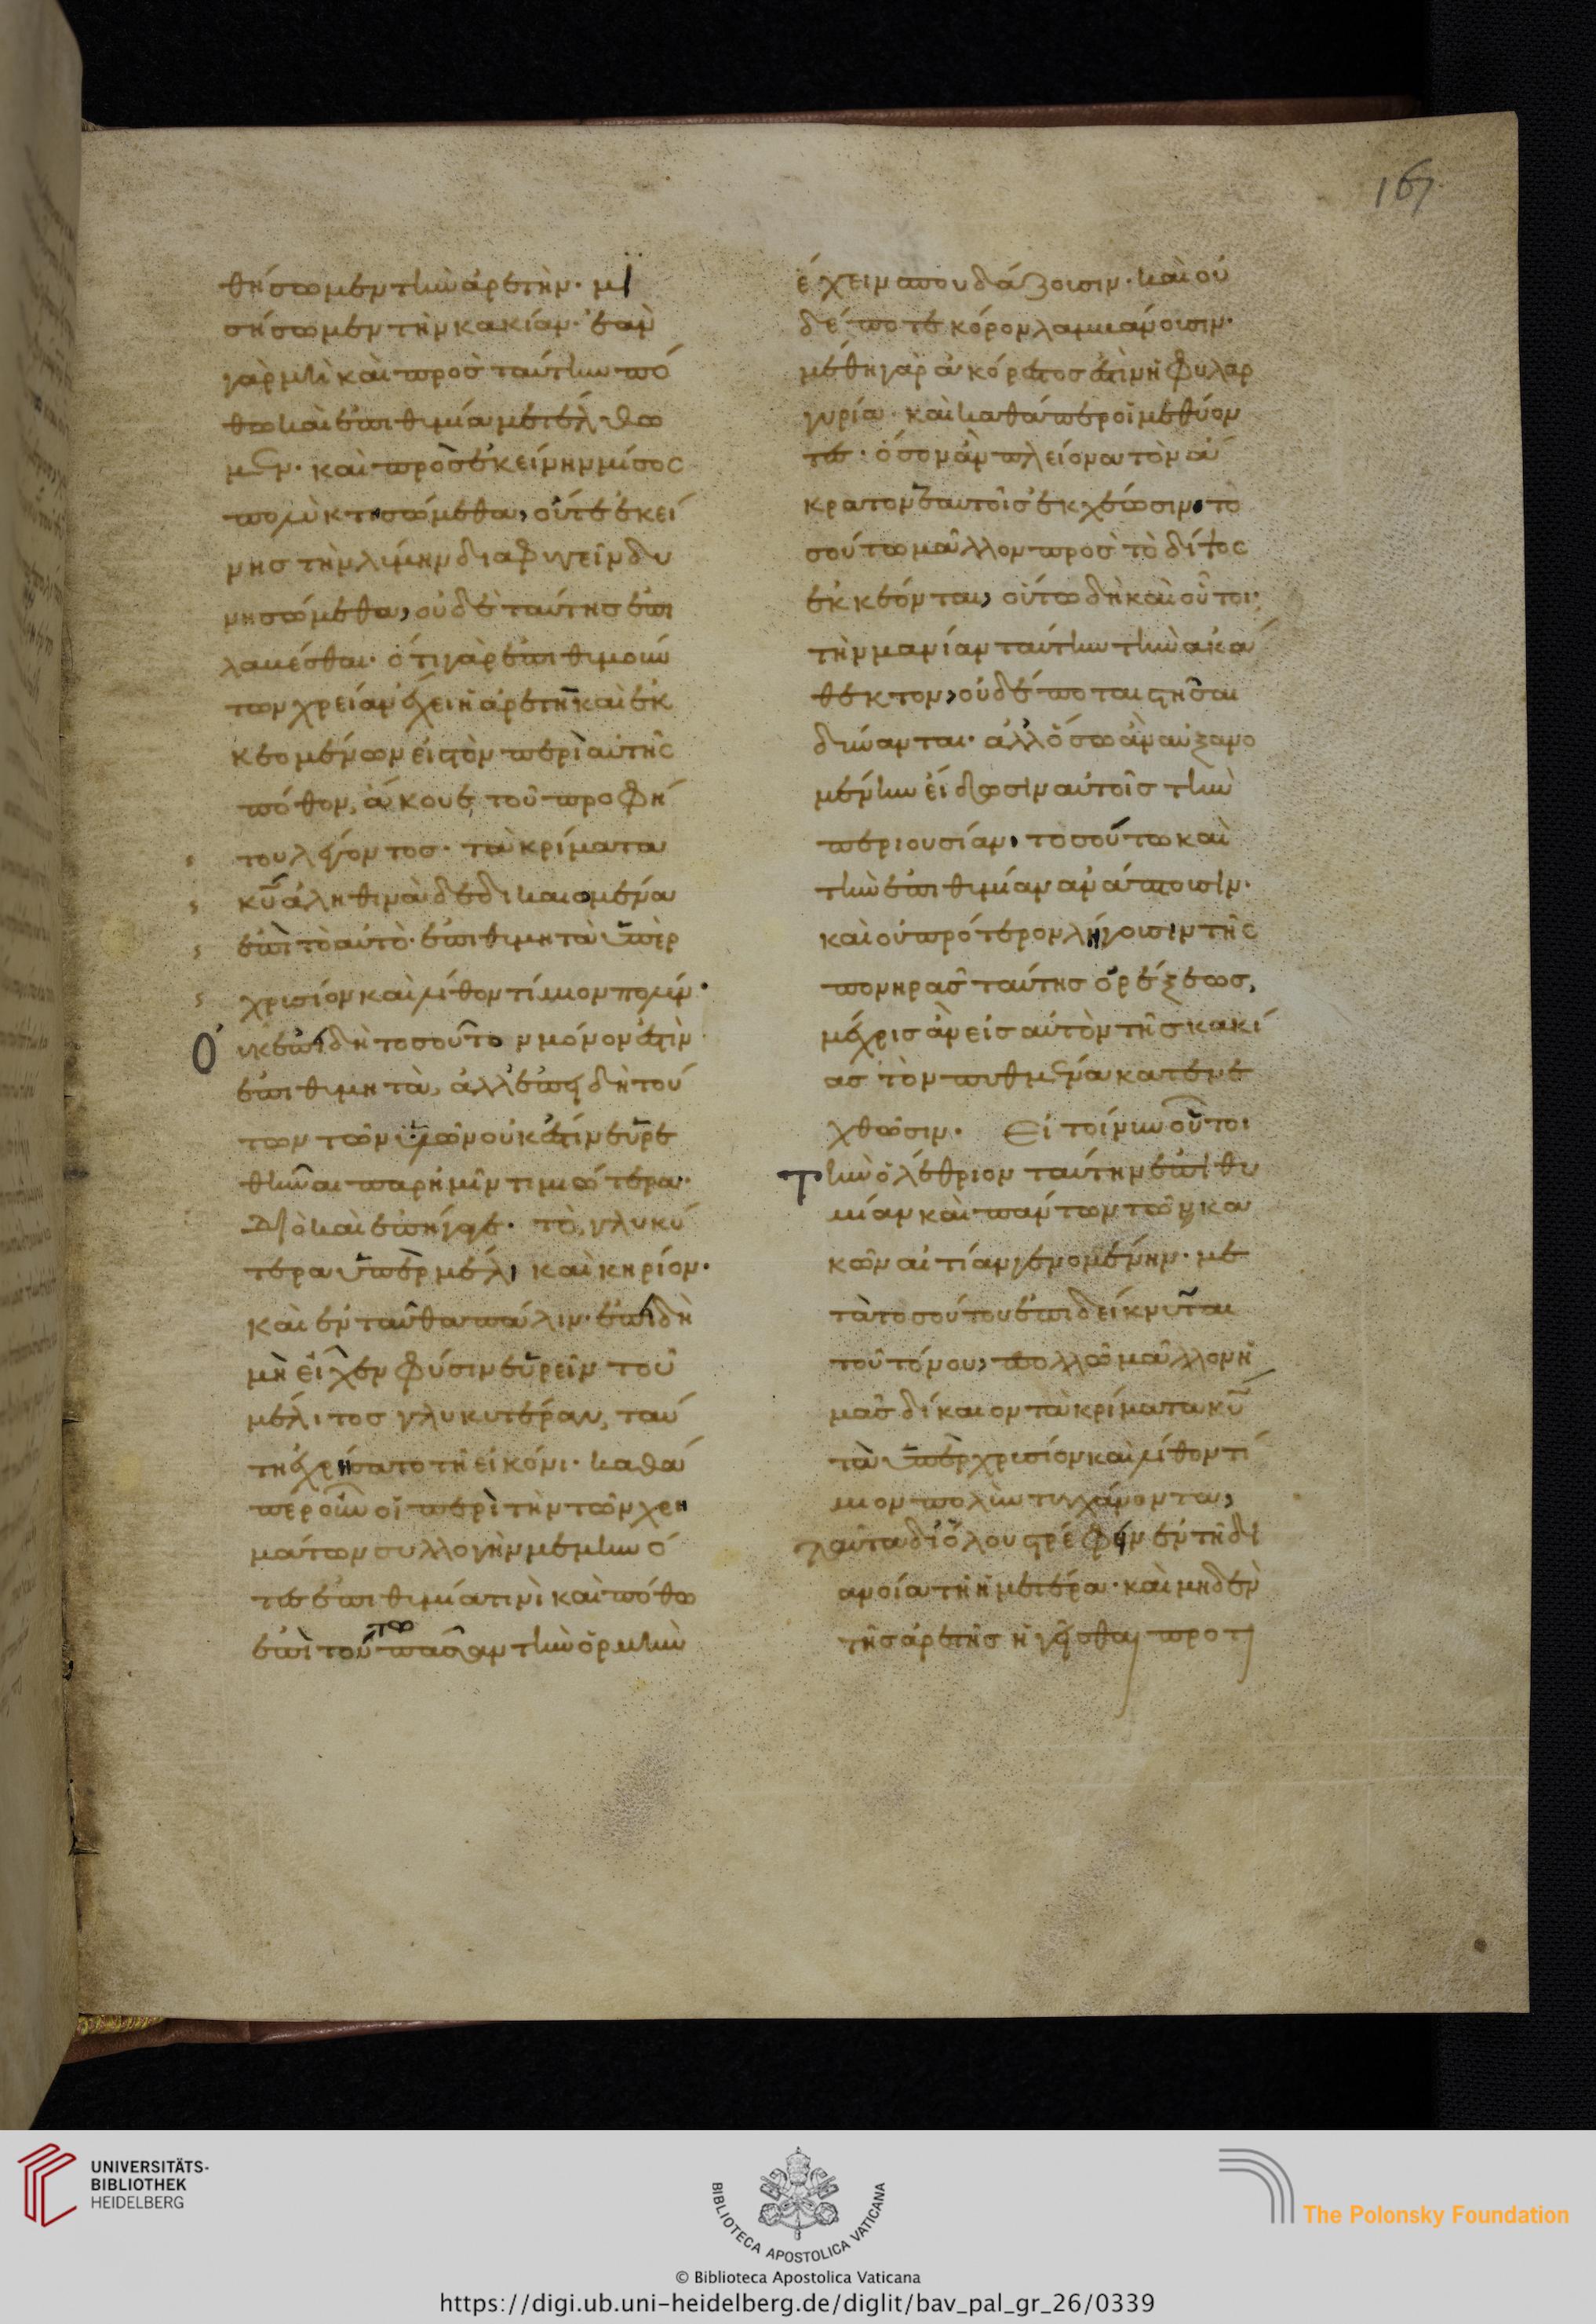 167
θήσωμεν τὴν ἀρετὴν· μϊ
σήσωμεν τὴν κακίαν· ἐὰν
γὰρ μὴ καὶ πρὸς ταύτην πό
θω καὶ ἐπιθυμία μετέλθω
μεν· καὶ πρὸς ἐκείνην μῖσος
πολὺ κτησώμεθα, οὔτε ἐκεί
νης τὴν λύμην διαφυγεῖν δυ
νησώμεθα, οὐδὲ ταύτης ἐπι
λαβέσθαι· ὅτι γὰρ ἐπιθυμούν
των χρείαν ἔχει ἡ ἀρετὴ καὶ ἐκ
κεομένων εἰς τὸν περὶ αὐτῆς
πόθον, ἄκουε τοῦ προφή
του λέγοντος· τὰ κρίματα
κῡ ἀληθινὰ δεδικαιομένα
ἐπὶ τὸ αὐτὸ· ἐπιθυμητὰ ὑπὲρ
χρυσίον καὶ λίθον τίμιον πολύν·
Οὐκ ἐπιδὴ τοσοῦτον μόνον ἐστὶν
ἐπιθυμητὰ, ἀλλ' ἐπειδὴ τού
των τῶν ὑλῶν οὐκ ἔστιν εὑρε
θῆναι παρ' ἡμῖν τιμιώτερα·
Διὸ καὶ ἐπήγαγε· τὸ, γλυκύ
τερα ὑπὲρ μέλι καὶ κηρίον·
καὶ ἐνταῦθα πάλιν· ἐπιδὴ
μὴ εἶχεν φύσιν εὑρεῖν τοῦ
μέλιτος γλυκυτέραν, ταύ
τη ἐχρήσατο τῆ εἰκόνι· καθά
περ οὖν οἱ περὶ τὴν τῶν χρη
μάτων συλλογὴν μεμηνό
τες ἐπιθυμία τινὶ καὶ πόθω
ἐπὶ τούτω πᾶσαν τὴν ὁρμὴν
ἔχειν σπουδάζουσιν· καὶ οὐ
δέποτε κόρον λαμβάνουσιν·
μέθη γὰρ ἀκόρεστος ἐστὶν ἡ φυλαρ
γυρία· καὶ καθάπερ οἱ μεθύον
τες· ὅσον ἂν πλείονα τὸν ἄ
κρατον ἑαυτοῖς ἐκχέωσιν· το
σούτω μᾶλλον πρὸς τὸ δίψος
ἐκκέονται, οὕτω δὴ καὶ οὗτοι·
τὴν μανίαν ταύτην τὴν ἀκά
θεκτον, οὐδέποται στῆσαι
δύνανται· ἀλλ' ὅσω ἂν αὐξανο
μένην εἴδωσιν αὐτοῖς τὴν
περιουσίαν· τοσούτω καὶ
τὴν ἐπιθυμίαν ἀνάπτουσιν·
καὶ οὐ πρότερον λήγουσιν τῆς
πονηρᾶς ταύτης ὀρέξεως,
μέχρις ἂν εἰς αὐτὸν τῆς κακί
ας τὸν πυθμένα κατενε
χθῶσιν· Εἰ τοίνυν οὗτοι
τὴν ὀλέθριον ταύτην ἐπιθυ
μίαν καὶ πάντων τῶν κα
κῶν αἰτίαν γενομένην· με
τὰ τοσούτου ἐπιδείκνυται
τοῦ τόνου, πολλῶ μᾶλλον ἡ
μᾶς δίκαιον τὰ κρίματα κῡ
τὰ ὑπὲρ χρυσίον καὶ λίθον τί
μιον πολὺν τυγχάνοντα,
ταῦτα δι' ὅλου στρέφειν ἐν τῆ δι
ανοία τῆ ἡμετέρα· καὶ μηδὲν
τῆς ἀρετῆς ἡγεῖσθαι προτι
UNIVERSITÄTS-
BIBLIOTHEK
HEIDELBERG
BIBLIOTECA APOSTOLICA VATICANA
The Polonsky Foundation
© Biblioteca Apostolica Vaticana
https://digi.ub.uni-heidelberg.de/diglit/bav_pal_gr_26/0339